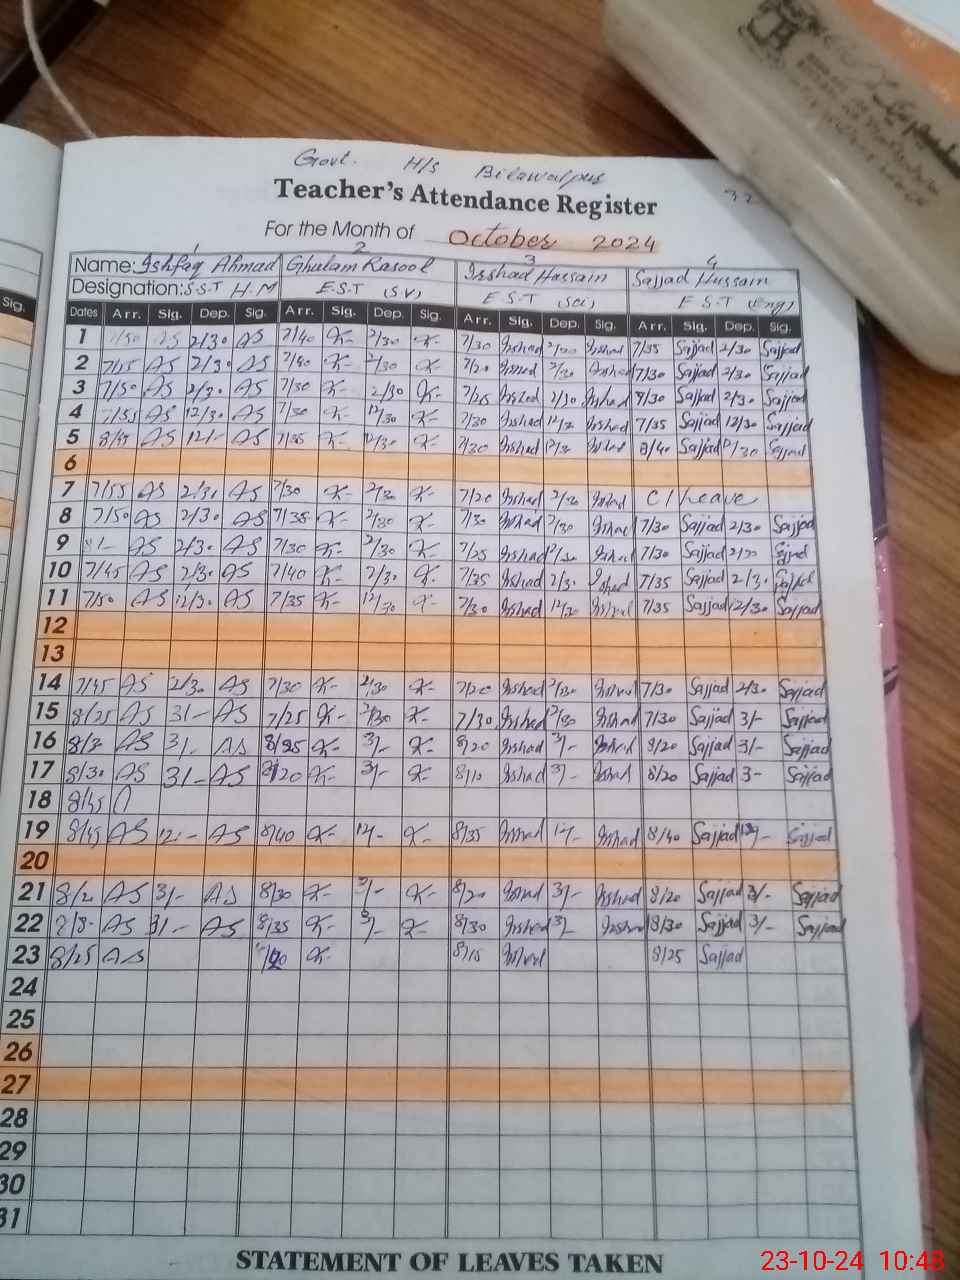 Govt. H/s Bilawalpur
32
Teacher's Attendance Register
For the Month of October 2024
1 2 3 4
Name: Ishfaq Ahmad Ghulam Rasool Irshad Hassain Sajjad Hussain
Designation: S.S.T H.M E.S.T (S.V) E.S.T (Sci) E.S.T (Eng)
Sig.
Dates Arr. Sig. Dep. Sig. Arr. Sig. Dep. Sig. Arr. Sig. Dep. Sig. Arr. Sig. Dep. Sig.
1 7/50 AS 2/30 AS 7/40 2/30 7/30 Irshad Irshad 7/35 Sajjad 2/30 Sajjad
2 7/55 AS 2/30 AS 7/40 2/30 7/20 Irshad 2/30 Irshad 7/30 Sajjad 2/30 Sajjad
3 7/50 AS 2/30 AS 7/30 2/30 7/25 Irshad 2/30 Irshad 8/30 Sajjad 2/30 Sajjad
4 7/55 AS 12/30 AS 7/30 12/30 7/30 Irshad Irshad 7/35 Sajjad 12/30 Sajjad
5 8/45 AS 12/- AS 7/35 12/30 7/30 Irshad 12/30 Irshad 8/40 Sajjad 12/30 Sajjad
6
7 7/55 AS 2/30 AS 7/30 2/30 7/20 Irshad 2/30 Irshad C/Leave
8 7/50 AS 2/30 AS 7/35 2/30 7/30 Irshad 2/30 Irshad 7/30 Sajjad 2/30 Sajjad
9 8/- AS 2/30 AS 7/30 2/30 7/25 Irshad 2/30 Irshad 7/30 Sajjad 2/30 Sajjad
10 7/45 AS 2/30 AS 7/40 2/30 7/35 Irshad 2/30 Irshad 7/35 Sajjad 2/30 Sajjad
11 7/50 AS 12/30 AS 7/35 12/30 7/30 Irshad 12/30 Irshad 7/35 Sajjad 12/30 Sajjad
12
13
14 7/45 AS 2/30 AS 7/30 2/30 7/20 Irshad 2/30 Irshad 7/30 Sajjad 2/30 Sajjad
15 8/25 AS 3/- AS 7/25 2/30 7/30 Irshad 2/30 Irshad 7/30 Sajjad 3/- Sajjad
16 8/30 AS 3/- AS 8/25 3/- 8/20 Irshad 3/- Irshad 8/20 Sajjad 3/- Sajjad
17 8/30 AS 3/- AS 8/20 3/- 8/10 Irshad 3/- Irshad 8/20 Sajjad 3- Sajjad
18 8/45
19 8/45 AS 12/- AS 8/40 12/- 8/35 Irshad 12/- Irshad 8/40 Sajjad 12/- Sajjad
20
21 8/20 AS 3/- AS 8/30 3/- 8/20 Irshad 3/- Irshad 8/20 Sajjad 3/- Sajjad
22 AS 3/- AS 8/35 3/- 8/30 Irshad 3/- Irshad 8/30 Sajjad 3/- Sajjad
23 8/25 AS 8/15 Irshad 8/25 Sajjad
24
25
26
27
28
29
30
31
STATEMENT OF LEAVES TAKEN
23-10-24 10:48